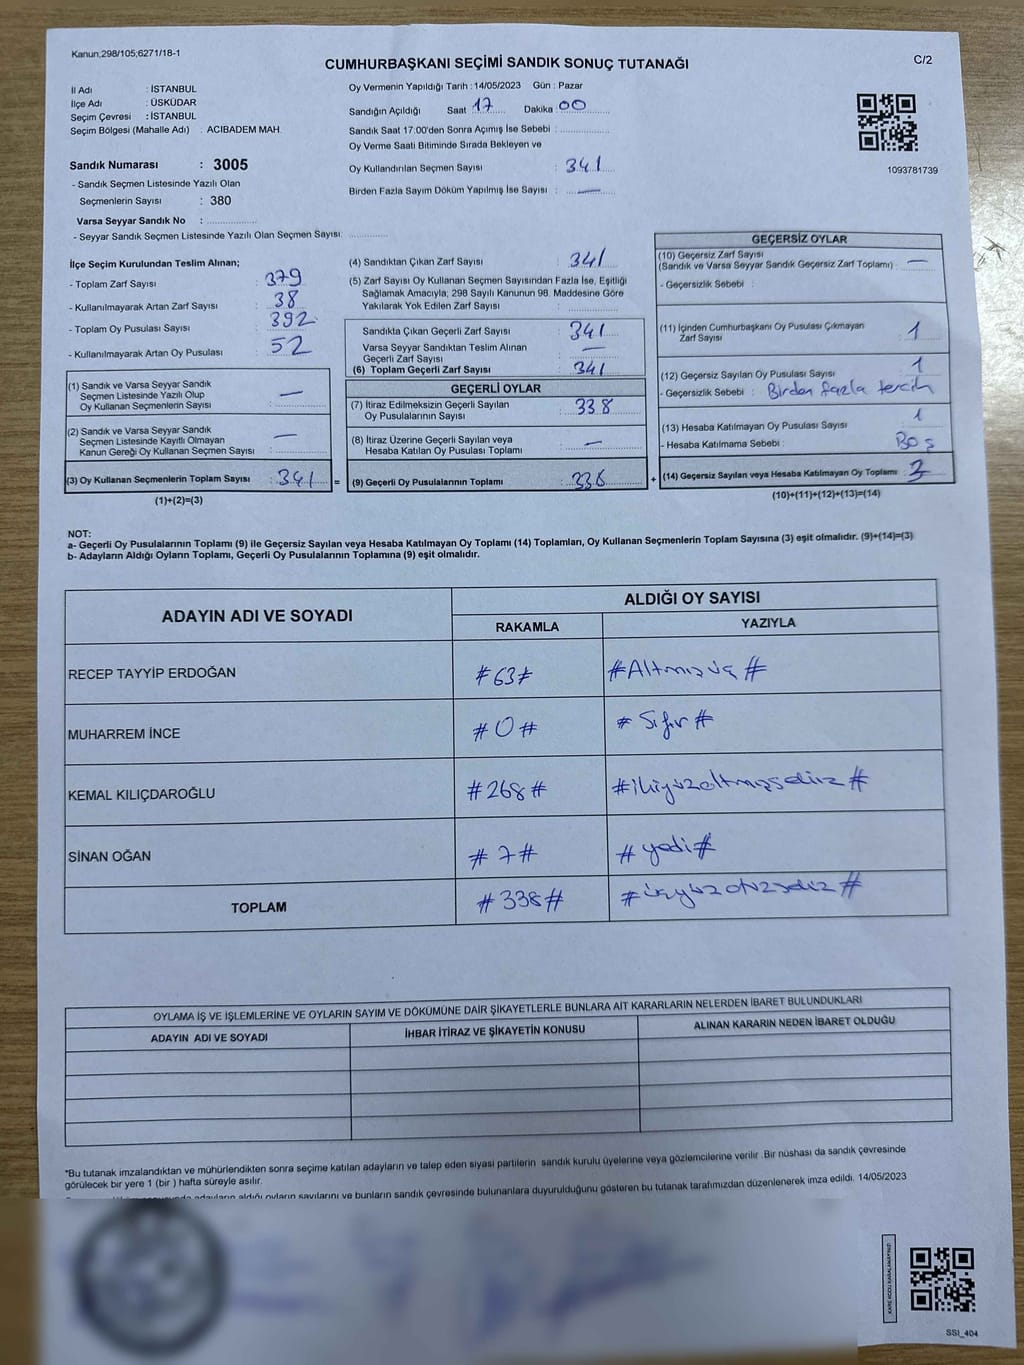 Kanun,298/105;6271/18-1
CUMHURBAŞKANI SEÇİMİ SANDIK SONUÇ TUTANAĞI
C/2
İl Adı : İSTANBUL
İlçe Adı : ÜSKÜDAR
Seçim Çevresi : İSTANBUL
Seçim Bölgesi (Mahalle Adı) : ACIBADEM MAH.
Sandık Numarası : 3005
- Sandık Seçmen Listesinde Yazılı Olan
Seçmenlerin Sayısı : 380
Varsa Seyyar Sandık No :
- Seyyar Sandık Seçmen Listesinde Yazılı Olan Seçmen Sayısı:
Oy Vermenin Yapıldığı Tarih : 14/05/2023 Gün : Pazar
Sandığın Açıldığı Saat 17 Dakika : 00
Sandık Saat 17:00'den Sonra Açımış İse Sebebi :
Oy Verme Saati Bitiminde Sırada Bekleyen ve
Oy Kullandırılan Seçmen Sayısı : 341
Birden Fazla Sayım Döküm Yapılmış İse Sayısı : —
1093781739
İlçe Seçim Kurulundan Teslim Alınan;
- Toplam Zarf Sayısı : 379
- Kullanılmayarak Artan Zarf Sayısı : 38
- Toplam Oy Pusulası Sayısı : 392
- Kullanılmayarak Artan Oy Pusulası : 52
(1) Sandık ve Varsa Seyyar Sandık
Seçmen Listesinde Yazılı Olup
Oy Kullanan Seçmenlerin Sayısı : —
(2) Sandık ve Varsa Seyyar Sandık
Seçmen Listesinde Kayıtlı Olmayan
Kanun Gereği Oy Kullanan Seçmen Sayısı : —
(3) Oy Kullanan Seçmenlerin Toplam Sayısı : 341 =
(1)+(2)=(3)
(4) Sandıktan Çıkan Zarf Sayısı : 341
(5) Zarf Sayısı Oy Kullanan Seçmen Sayısından Fazla İse, Eşitliği
Sağlamak Amacıyla, 298 Sayılı Kanunun 98. Maddesine Göre
Yakılarak Yok Edilen Zarf Sayısı :
Sandıkta Çıkan Geçerli Zarf Sayısı : 341
Varsa Seyyar Sandıktan Teslim Alınan
Geçerli Zarf Sayısı : —
(6) Toplam Geçerli Zarf Sayısı : 341
GEÇERLİ OYLAR
(7) İtiraz Edilmeksizin Geçerli Sayılan
Oy Pusulalarının Sayısı : 338
(8) İtiraz Üzerine Geçerli Sayılan veya
Hesaba Katılan Oy Pusulası Toplamı : —
(9) Geçerli Oy Pusulalarının Toplamı : 338 +
GEÇERSİZ OYLAR
(10) Geçersiz Zarf Sayısı
(Sandık ve Varsa Seyyar Sandık Geçersiz Zarf Toplamı) : —
- Geçersizlik Sebebi :
(11) İçinden Cumhurbaşkanı Oy Pusulası Çıkmayan
Zarf Sayısı : 1
(12) Geçersiz Sayılan Oy Pusulası Sayısı : 1
- Geçersizlik Sebebi : Birden fazla tercih
(13) Hesaba Katılmayan Oy Pusulası Sayısı : 1
- Hesaba Katılmama Sebebi : Boş
(14) Geçersiz Sayılan veya Hesaba Katılmayan Oy Toplamı : 3
(10)+(11)+(12)+(13)=(14)
NOT:
a- Geçerli Oy Pusulalarının Toplamı (9) ile Geçersiz Sayılan veya Hesaba Katılmayan Oy Toplamı (14) Toplamları, Oy Kullanan Seçmenlerin Toplam Sayısına (3) eşit olmalıdır. (9)+(14)=(3)
b- Adayların Aldığı Oyların Toplamı, Geçerli Oy Pusulalarının Toplamına (9) eşit olmalıdır.
ADAYIN ADI VE SOYADI
ALDIĞI OY SAYISI
RAKAMLA YAZIYLA
RECEP TAYYİP ERDOĞAN #63# #Altmış üç#
MUHARREM İNCE #0# #Sıfır#
KEMAL KILIÇDAROĞLU #268# #ikiyüzaltmışsekiz#
SİNAN OĞAN #7# #yedi#
TOPLAM #338# #üçyüzotuzsekiz#
OYLAMA İŞ VE İŞLEMLERİNE VE OYLARIN SAYIM VE DÖKÜMÜNE DAİR ŞİKAYETLERLE BUNLARA AİT KARARLARIN NELERDEN İBARET BULUNDUKLARI
ADAYIN ADI VE SOYADI İHBAR İTİRAZ VE ŞİKAYETİN KONUSU ALINAN KARARIN NEDEN İBARET OLDUĞU
*Bu tutanak imzalandıktan ve mühürlendikten sonra seçime katılan adayların ve talep eden siyasi partilerin sandık kurulu üyelerine veya gözlemcilerine verilir .Bir nüshası da sandık çevresinde
görülecek bir yere 1 (bir ) hafta süreyle asılır.
adayların aldığı oyların sayılarını ve bunların sandık çevresinde bulunanlara duyurulduğunu gösteren bu tutanak tarafımızdan düzenlenerek imza edildi. 14/05/2023
KARE KODU KARALAMAYINIZ!
SSI_404